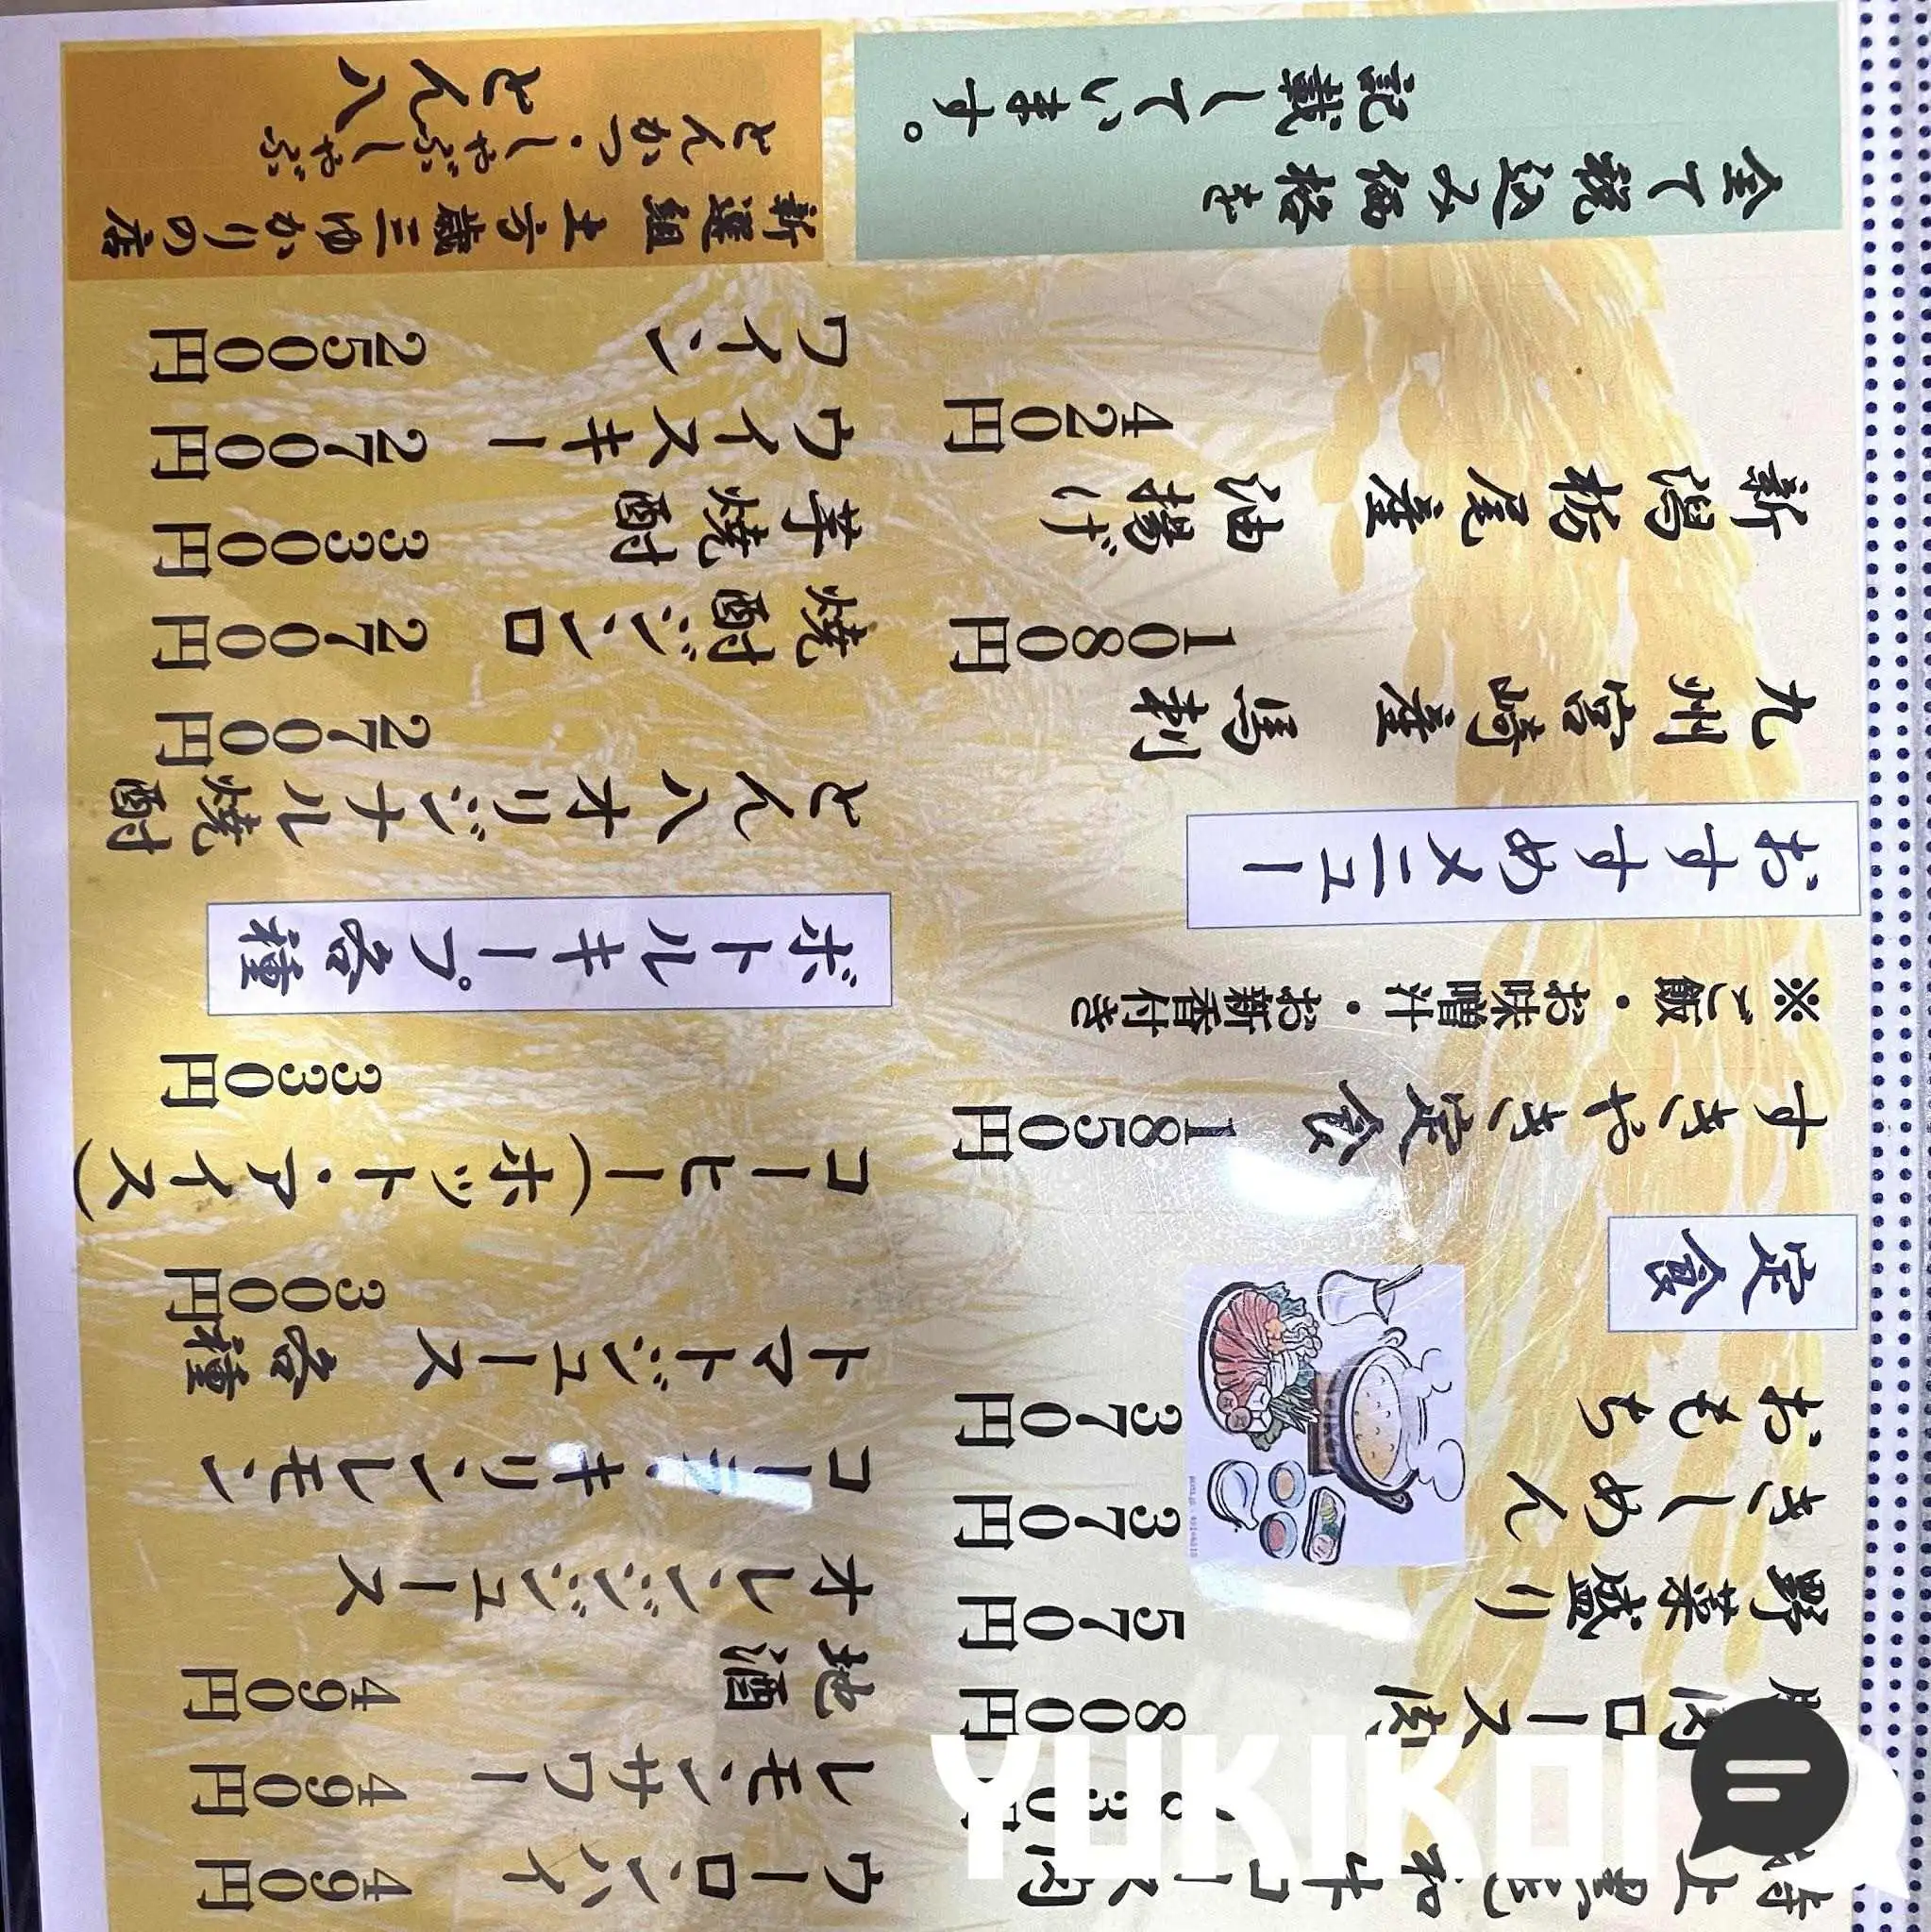 特上黒毛和牛ロース肉
ロース肉 800円
野菜盛り 570円
きしめん 370円
おもち 370円
定食
すきやき定食 1850円
※ご飯・お味噌汁・お新香付き
おすすめメニュー
九州宮崎産 馬刺
1080円
新潟栃尾産 油揚げ
420円
全て税込み価格を
記載しています。
ウーロンハイ 490円
レモンサワー 490円
地酒 490円
オレンジジュース
コーラ・キリンレモン
トマトジュース 各種
300円
コーヒー(ホット・アイス)
330円
ボトルキープ各種
とん八オリジナル焼酎
2700円
焼酎ジンロ 2700円
芋焼酎 3300円
ウイスキー 2700円
ワイン 2500円
新選組土方歳三ゆかりの店
とんかつ・しゃぶしゃぶ
とん八
YUKIKOI